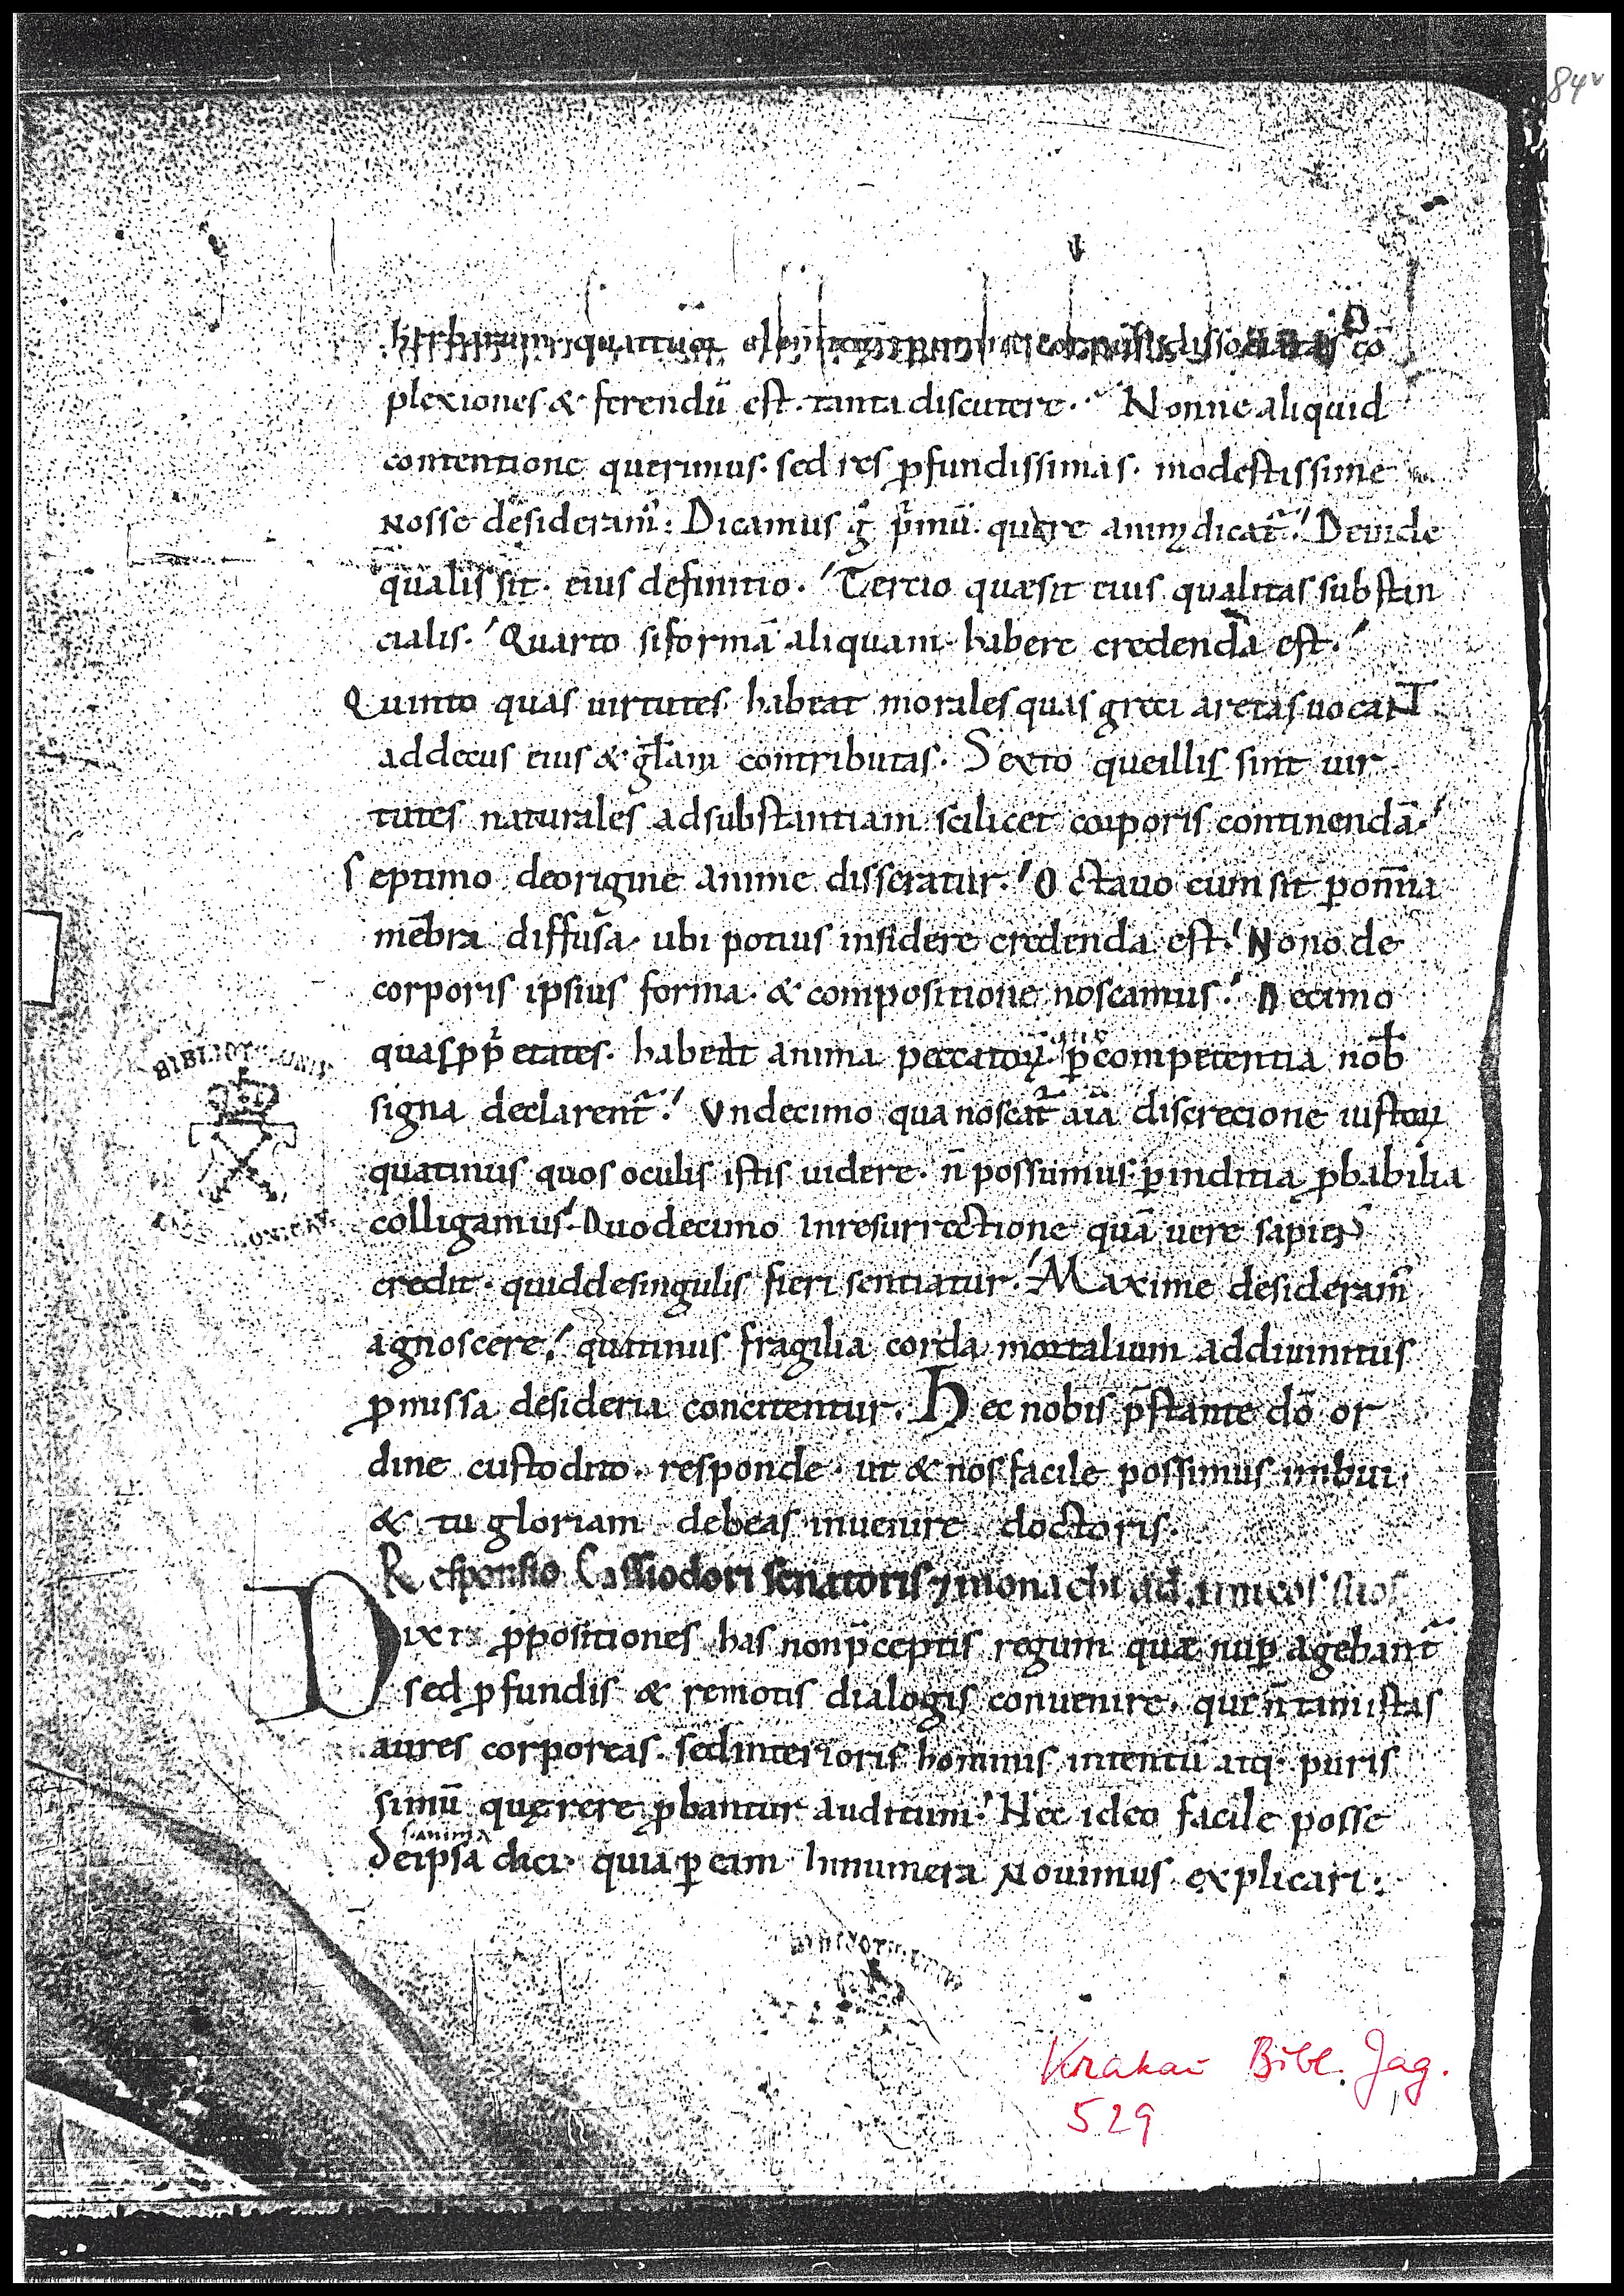 84v
herbarum quattuor dissociatas cō
plexiones & ferendū est. tanta discutere. Nonne aliquid
contentione querimus. sed res ꝓfundissimas. modestissime
Nosse desideramꝰ: Dicamus gͦ pͥmū. quare animȩ dicat᷑. Deinde
qualis sit. eius definitio. Tertio quæ sit eius qualitas substan
cialis. Quarto si formā aliquam habere credenda est.
Quinto quas uirtutes habeat morales quas greci aretas uocanT
ad decus eius & gl̄am contributas. Sexto que illis sint uir
tutes naturales ad substantiam scilicet corporis continendā.
Septimo de origine anime disseratur. Octauo cum sit ꝑ om̄ia
mēbra diffusa. ubi potius insidere credenda est. Nono de
corporis ipsius forma. & compositione noscamus. Decimo
quas ꝓpͥetates. habeat anima peccatoꝝ. ꝑ competentia nob̄
signa declarent᷑. Vndecimo qua noscat᷑ aīa discrecione iustoꝝ
quatinus quos oculis istis uidere. n̄ possumus. ꝑ inditia ꝓbabilia
colligamus. Duodecimo In resurrectione quā uere sapiens
credit. quid de singulis fieri sentiatur. Maxime desideramꝰ
agnoscere. quatinus fragilia corda mortalium ad diuinitus
ꝓmissa desideria concitentur. Hec nobis p̄stante dō or
dine custodito. responde. ut & nos facile possimus imbui.
& tu gloriam debeas inuenire doctoris.
Responsio Cassiodori senatoris ⁊ monachi ad amicos suos
Dixi ꝓpositiones has non p̄ceptis regum quæ nuꝑ agebant᷑
sed ꝓfundis & remotis dialogis conuenire. que n̄ tam istas
aures corporeas. sed interioris hominis intentū atq; puris
simū quęrere ꝓbantur auditum. Nec ideo facile posse
s. anima
De ipsa dici. quia ꝑ eam Innumera Nouimus explicari.
Krakau Bibl. Jag.
529